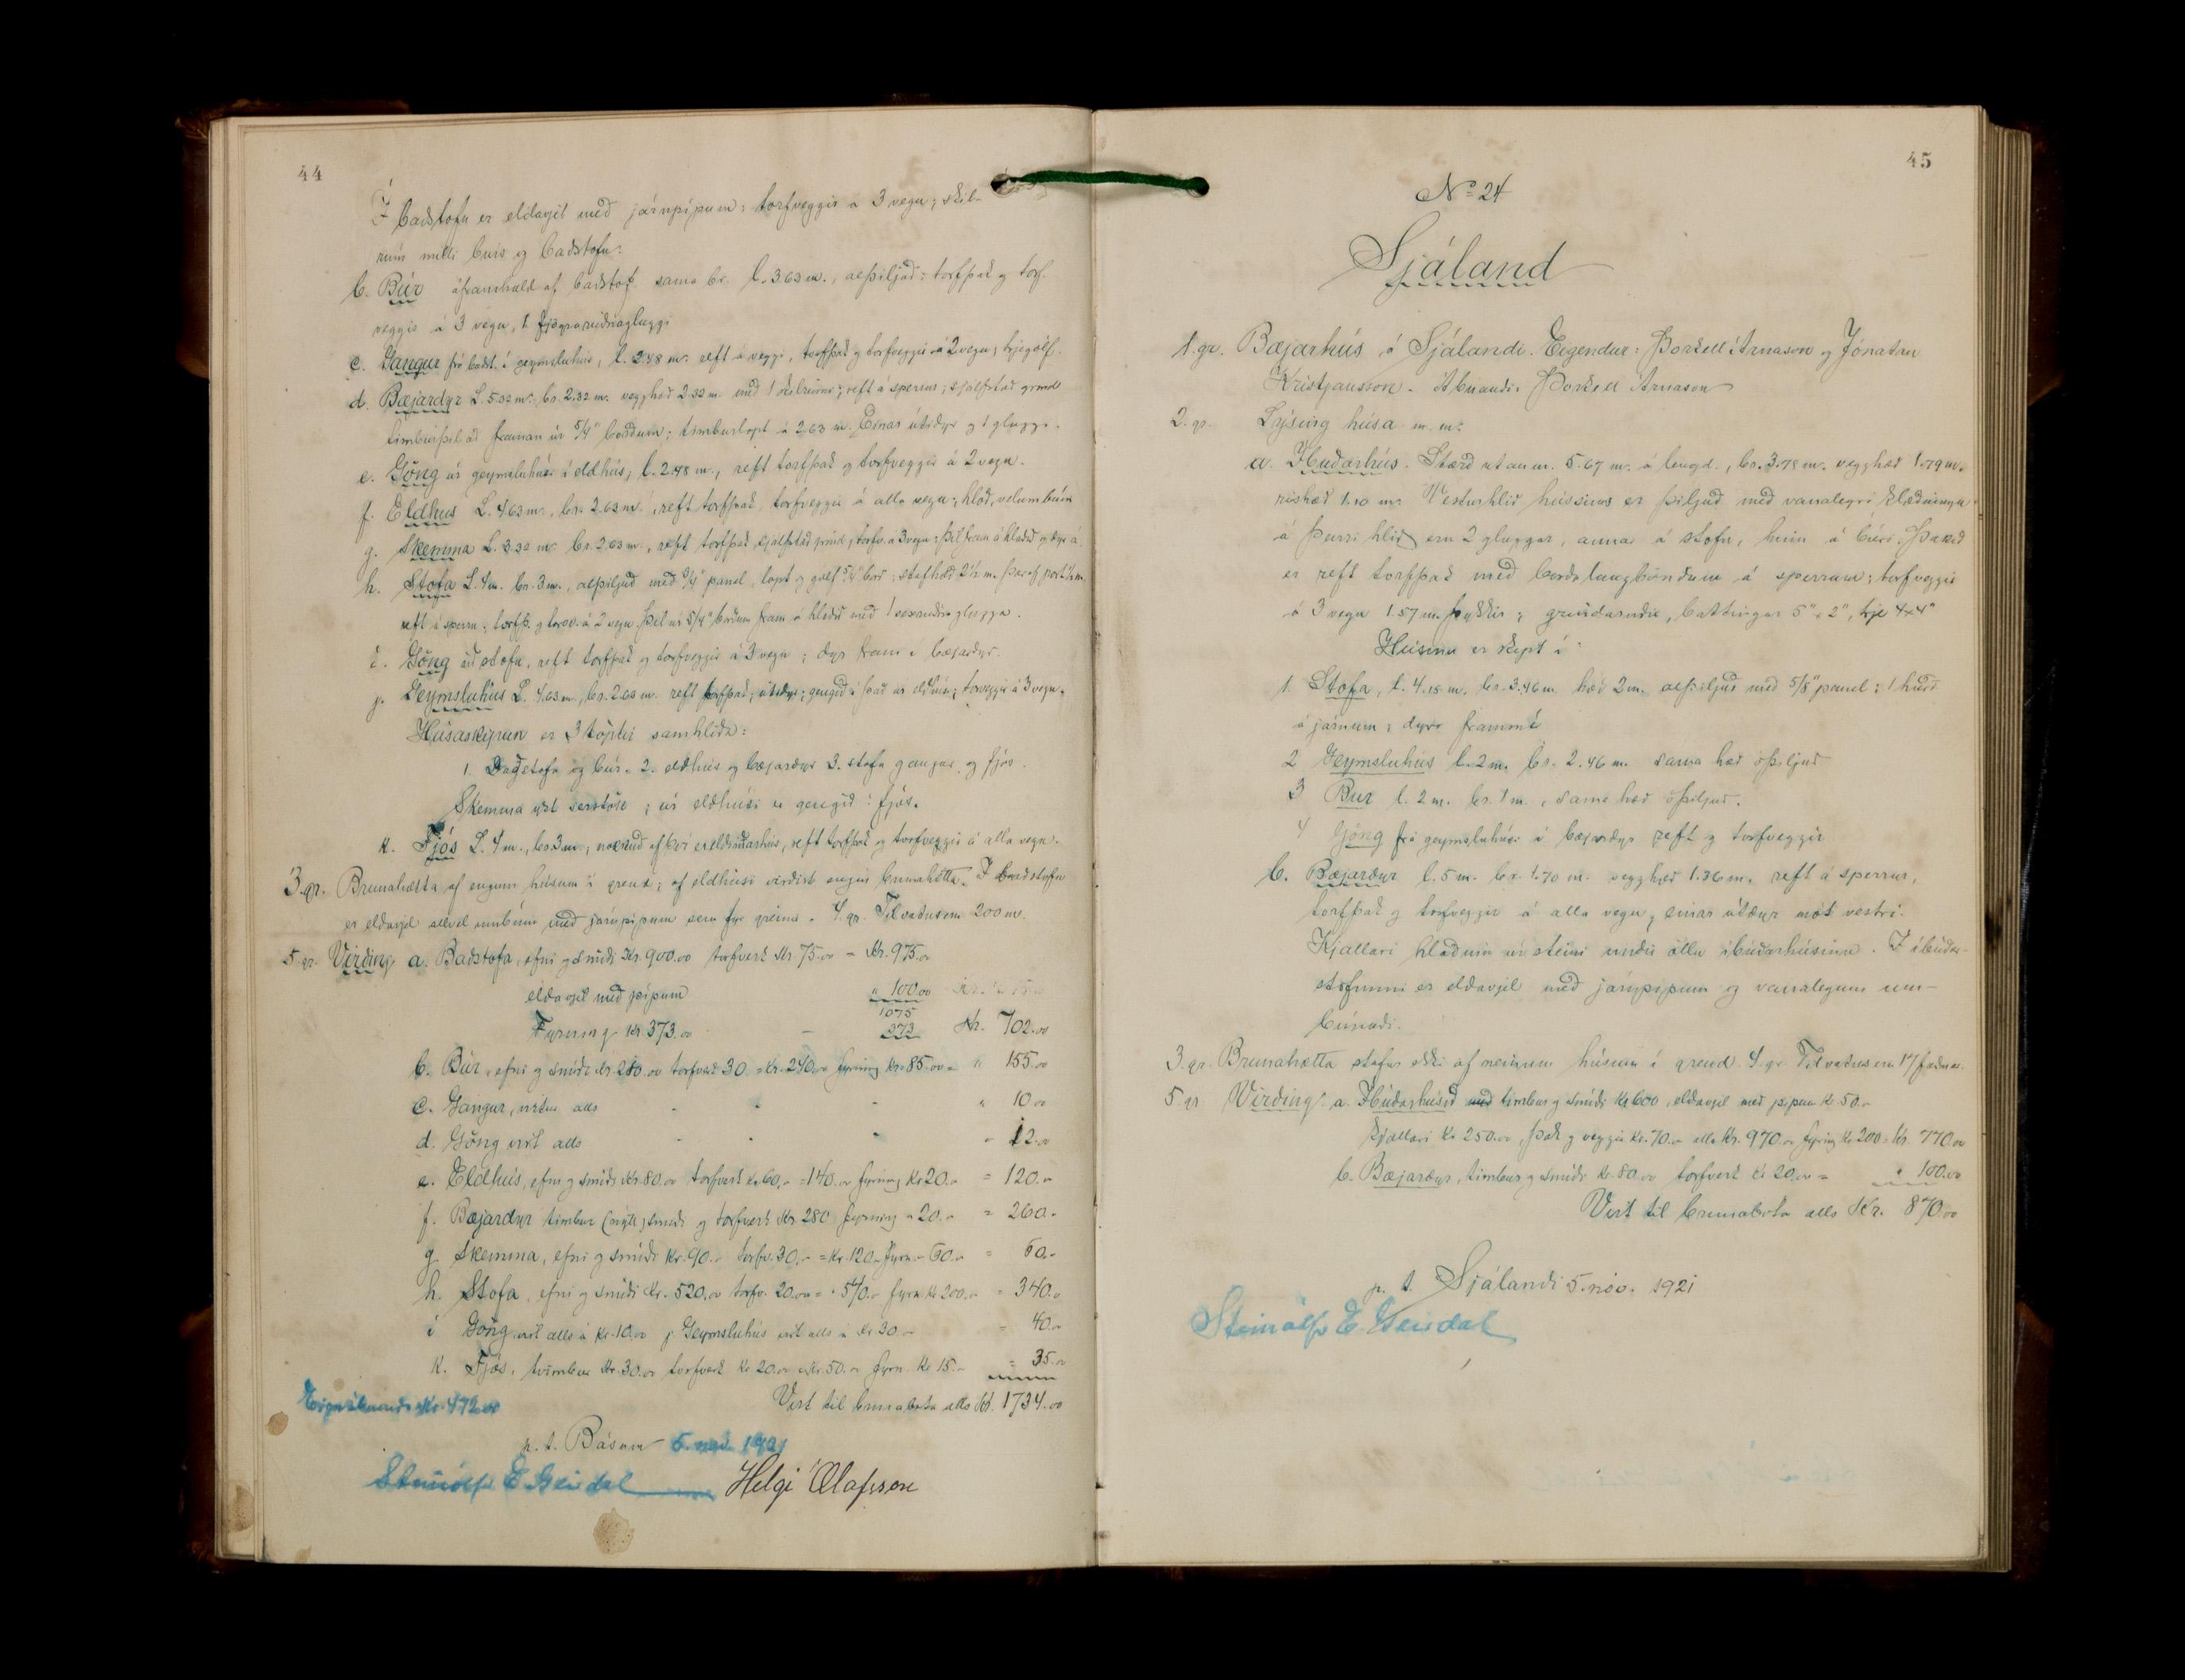 44
Í baðstofu er eldavjel með járnpípum; torfveggir á 3 vegu; skil-
rúm milli búrs og baðstofu:
b. Búr áframhald af baðstof sama br. l. 3.63 m., alþiljað: torfþak og torf-
veggir á 3 vegu, 1 fjögra rúðna gluggi
c. Gangur frá baðst. í geymsluhús, l. 2.48 m. reft á veggi, torfþak og torfveggir á 2 vegu; trjególf.
d. Bæjardyr L. 5.32 m. br. 2.32 m. vegghæð 2.32 m. með 1 skilrúmi; reft á sperrur; sjálfstæð grind
timburþil að framan úr 5/4" borðum; timburlopt á 2.63 m. Einar útidyr og 1 gluggi.
e. Göng úr geymsluhúsi í eldhús, l. 2.48 m., reft torfþak og torfveggir á 2 vegu.
f. Eldhús L. 4.63 m., br. 2.63 m., reft torfþak, torfveggir á alla vegu; hlóð, vel umbúin
g. Skemma L. 3.32 m. br. 2.63 m., reft torfþak, sjálfstæð grind, torfv. á 3 vegu; þil fram á hlaðið og dyr á.
h. Stofa L. 4 m. br. 3 m., alþiljuð með 3/4" panel, lopt og gólf 5/4" borð; stafhæð 2 1/2 m. þar af port 1/2 m.
reft á sperrur; torfþ. og torfv. á 2 vegu þil úr 5/4" borðum fram á hlaðið með 1 sexrúðu glugga.
i. Göng að stofu, reft torfþak og torfveggir á 3 vegu; dyr fram í bæjardyr.
j. Geymsluhús L. 4.63 m., br. 2.63 m. reft torfþak; útidyr; gengið í það úr eldhúsi; torfveggir á 3 vegu.
Húsaskipun er 3 tóptir samhliða:
1. Baðstofa og búr. 2. eldhús og bæjardyr 3. stofa gangur og fjós.
Skemma yst serstök; úr eldhúsi er gengið í fjós.
k. Fjós L. 4 m., br. 3 m., notkuð af því er eldiviðarhús, reft torfþak og torfveggir á alla vegu.
3. gr. Brunahætta af engum húsum í grend; af eldhúsi virðist engin brunahætta. Í baðstofu
er eldavjel allvel umbúin með járnpípum sem fyr greint. 4. gr. Til vatns em 200 m.
5. gr. Virðing a. Baðstofa, efni og smíði Kr. 900.00 torfverk Kr. 75.00 = Kr. 975.00
eldavjel með pípum " 100.00
1075
Fyrning Kr. 373.00 - 373 Kr. 702.00
b. Búr, efni og smíði Kr. 210.00 torfverk 30 = Kr. 240.00 fyrning Kr. 85.00 = " 155.00
c. Gangur, virtur alls " 10.00
d. Göng virt alls " 12.00
e. Eldhús, efni og smíði Kr. 80.00 torfverk Kr. 60.- = 140.00 fyrning Kr. 20.- = 120.-
f. Bæjardyr timbur (nýtt) smíði og torfverk Kr. 280 fyrning " 20.- = 260.-
g. Skemma, efni og smíði Kr. 90.- torfv. 30.- = Kr. 120.- fyrn. - 60.- = 60.-
h. Stofa, efni og smíði Kr. 520.00 torfv. 20.00 = " 540.- fyrn. Kr. 200.- = 340.-
i Göng virt alls á Kr. 10.00 j. Geymsluhús virt alls á Kr. 30.- = 40.-
k. Fjós, timbur Kr. 30.00 torfverk Kr. 20.00 = Kr. 50.00 fyrn. Kr. 15.- = 35.-
Eigin ábyrgð Kr. 472.00 Virt til brunabóta alls Kr. 1734.00
p. t. Básum 5. nóv. 1921
Steinólfur E. Geirdal Helgi Ólafsson
45
No 24
Sjáland
1. gr. Bæjarhús á Sjálandi. Eigendur: Þorkell Árnason og Jónatan
Kristjánsson. Ábúandi: Þorkell Árnason
2. gr. Lýsing húsa m. m:
a. Íbúðarhús. Stærð utanm. 5.67 m. á lengd, br. 3.78 m. vegghæð 1.79 m.
rishæð 1.10 m. Vesturhlið hússins er þiljuð með vanalegri klæðningu
á þeirri hlið eru 2 gluggar, annar á stofu, hinn á búri. Þakið
er reft torfþak með borðalangböndum á sperrum; torfveggir
á 3 vegu 1.57 m. þykkir; grindarviðir, battingar 5" x 2", trje 4x4"
Húsinu er skipt í:
1. Stofa, l. 4.15 m. br. 3.46 m. hæð 2 m. alþiljuð með 5/8" panel; 1 hurð
á járnum, dyrr frammí
2 Geymsluhús l. 2 m. br. 2.46 m. sama hæð óþiljuð
3 Búr l. 2 m. br. 1 m., sama hæð óþiljuð.
4 Göng frá geymsluhúsi í bæjardyr reft og torfveggir
b. Bæjardyr l. 5 m. br. 1.70 m. vegghæð 1.36 m. reft á sperrur,
torfþak og torfveggir á alla vegu; einar útidyr mót vestri.
Kjallari hlaðinn úr steini undir öllu íbúðarhúsinu. Í íbúðar-
stofunni er eldavjel með járnpípum og vanalegum um-
búnaði.
3. gr. Brunahætta stafar ekki af neinum húsum í grend. 4. gr. Til vatns em 17 faðmar.
5. gr Virðing: a. Íbúðarhúsið með timbur og smíði Kr 600, eldavjel með pípum Kr. 50.-
kjallari Kr 250.00, þak og veggir Kr. 70.- alls Kr. 970.00 fyrning Kr 200 = Kr. 770.00
b. Bæjardyr, timbur og smíði Kr. 80.00 torfverk Kr 20.00 = " 100.00
Virt til brunabóta alls Kr. 870.00
p. t. Sjálandi 5. nóv. 1921
Steinólfr E. Geirdal